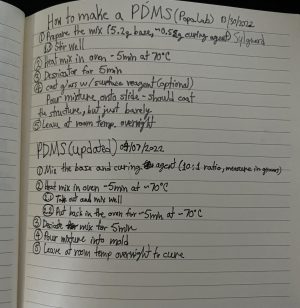 How to make a PDMS (Popa Lab) 10/30/2022
① Prepare the mix (5.2g base, ~0.52g curing agent) Sylgard
Stir well
② Heat mix in oven ~5min at 70°C
③ Desiccator for 5min
④ coat glass w/ surface reagent (optional)
Pour mixture onto slide - should coat
the structure, but just barely
⑤ Leave at room temp overnight
PDMS (updated) 07/2022
① Mix the base and curing agent (10:1 ratio, measure in grams)
② Heat mix in oven ~5min at ~70°C
2.1 Take out and mix well
2.2 Put back in the oven for ~5min at ~70°C
③ Desicate mix for 5min
④ Pour mixture into mold
⑤ Leave at room temp overnight to cure